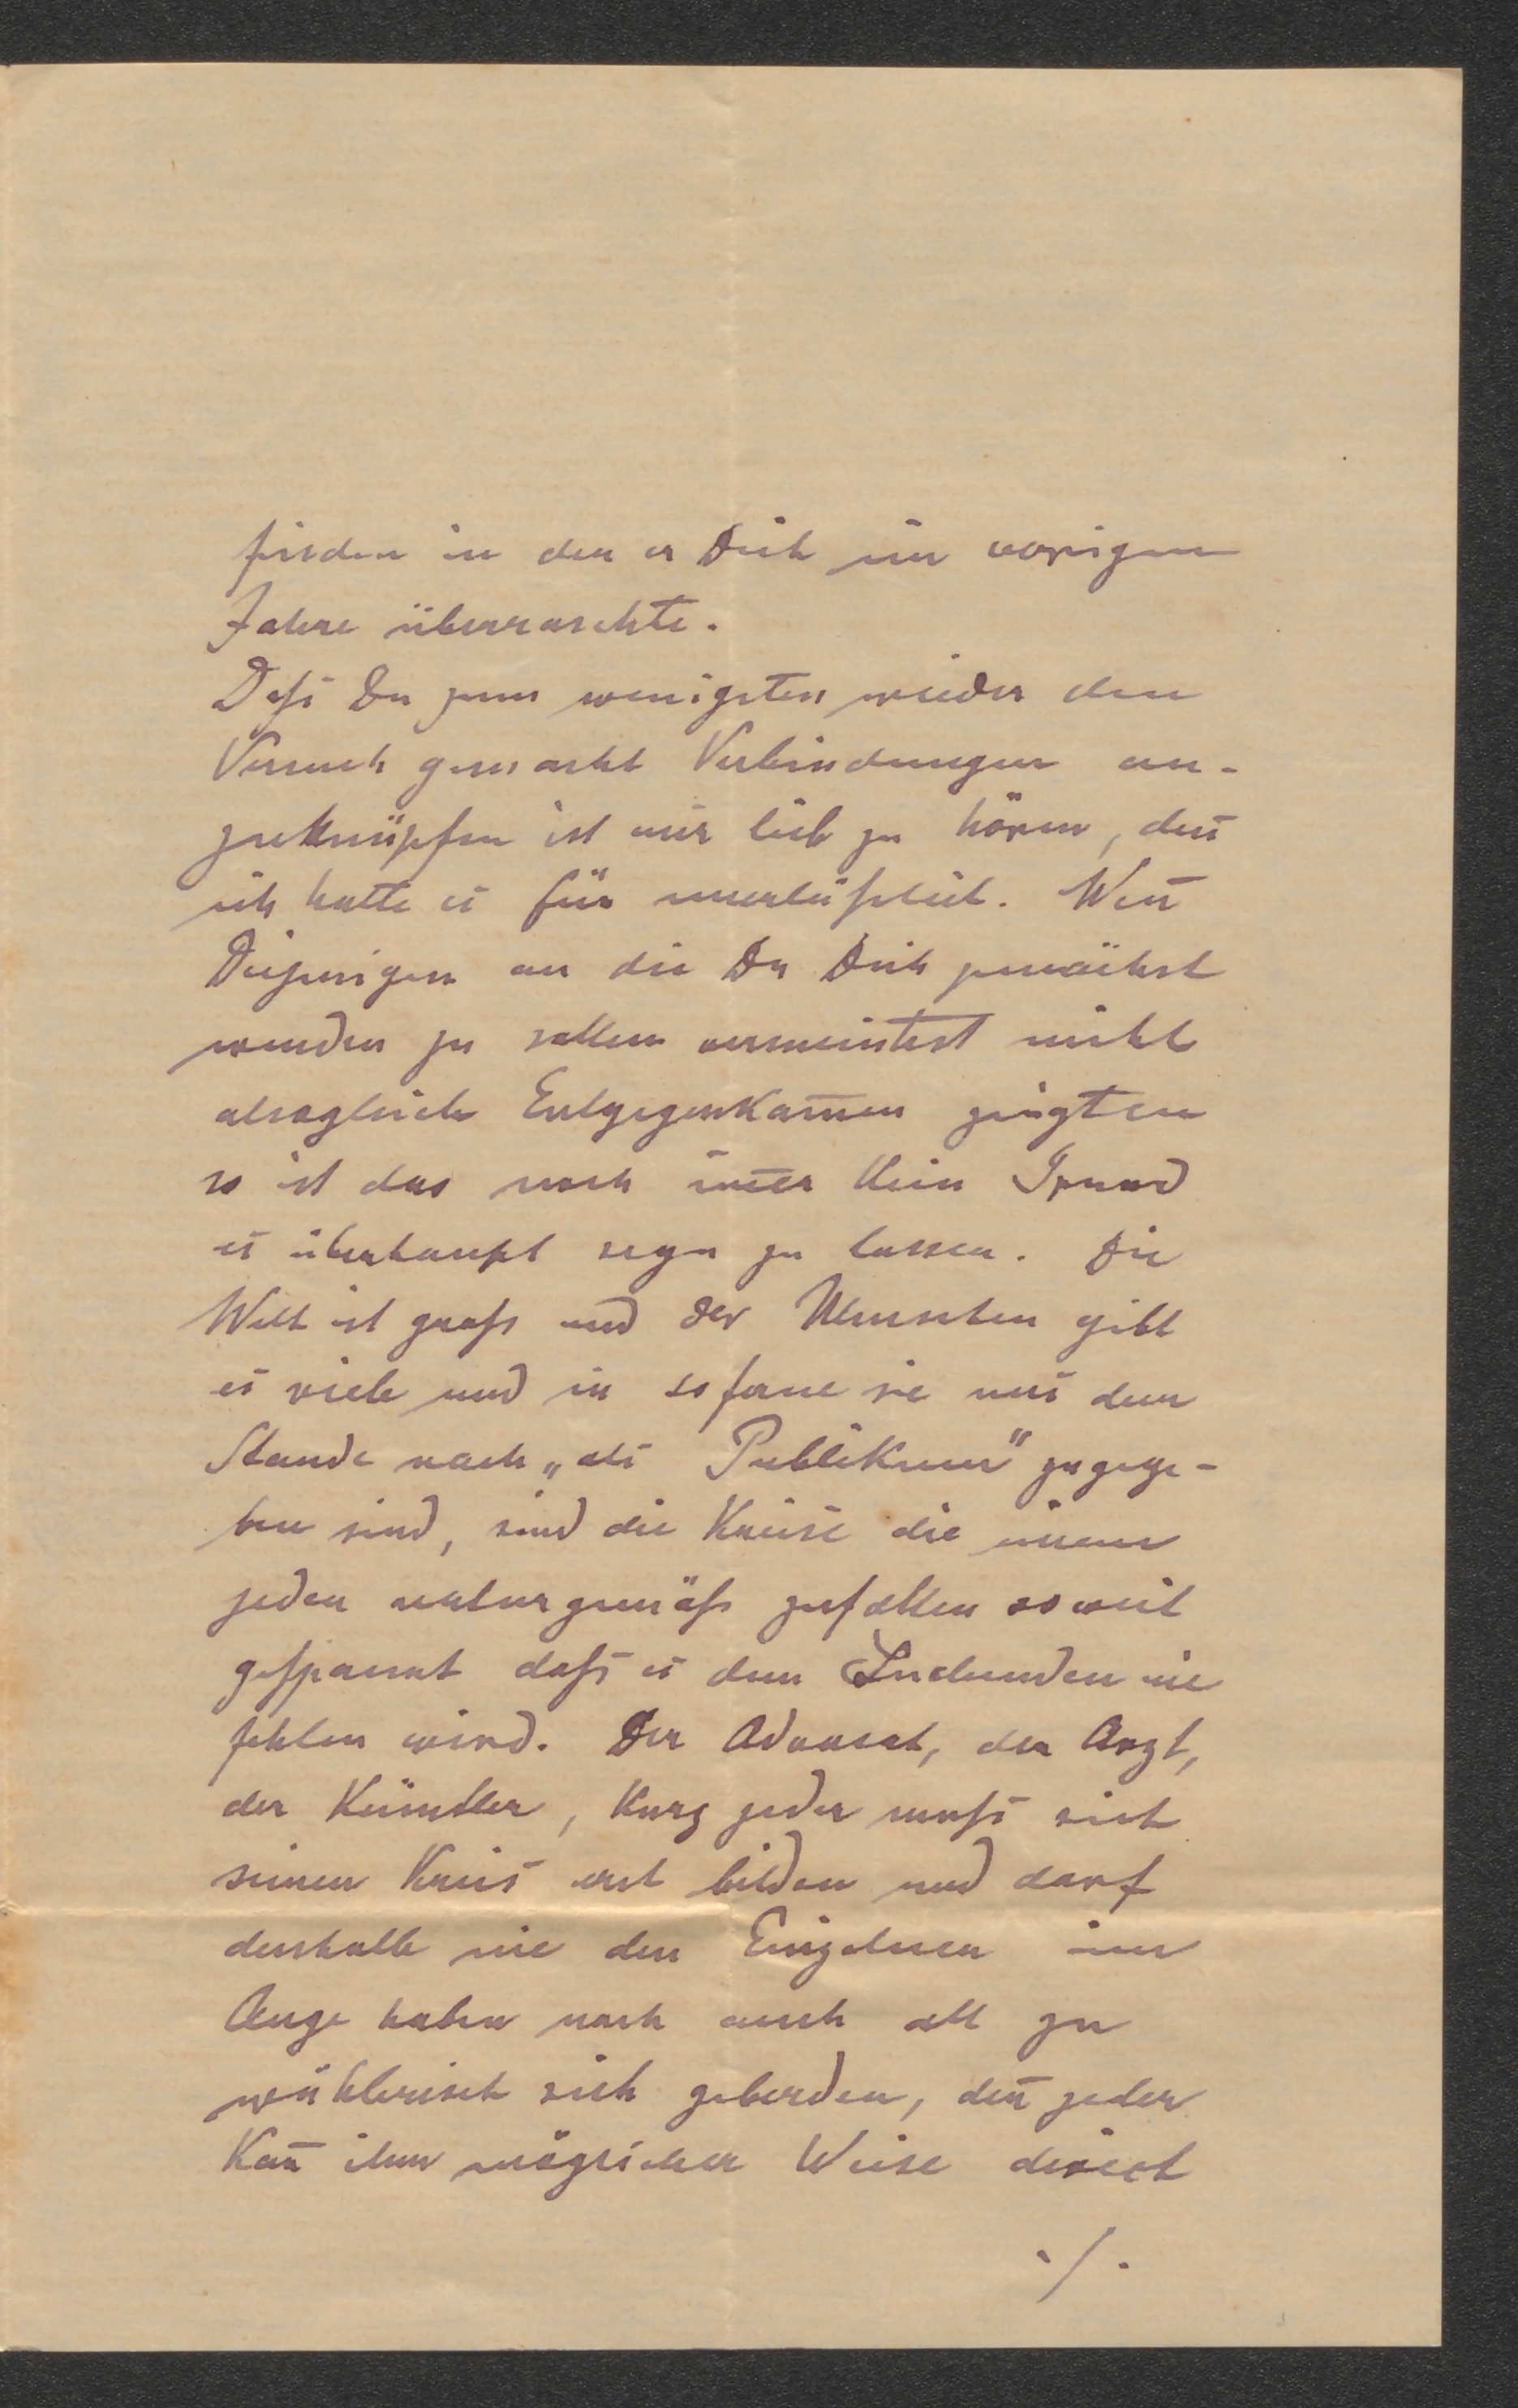 finden in der er Dich im vorigen
Jahre überraschte.
Daß Du zum wenigsten wieder den
Versuch gemacht Verbindungen an-
zuknüpfen ist mir lieb zu hören, den̄
ich halte es für unerläßlich. Wen̄
Diejenigen an die Du Dich zunächst
wenden zu sollen vermeintest nicht
alsogleich Entgegenkom̄en zeigten
so ist das noch im̄er kein Grund
es überhaupt seyn zu lassen. Die
Welt ist groß und der Menschen gibt
es viele und in soferne sie uns dem
Stande nach „als Publikum" zugege-
ben sind, sind die Kreise die einem
jeden naturgemäß zufallen so weit
gespannt daß es dem Suchenden nie
fehlen wird. Der Advocat, der Arzt,
der Künstler, kurz jeder muß sich
seinen Kreis erst bilden und darf
deshalb nie den Einzelnen im
Auge haben noch auch all zu
wählerisch sich geberden, den̄ jeder
kan̄ ihm möglicher Weise direct
./.